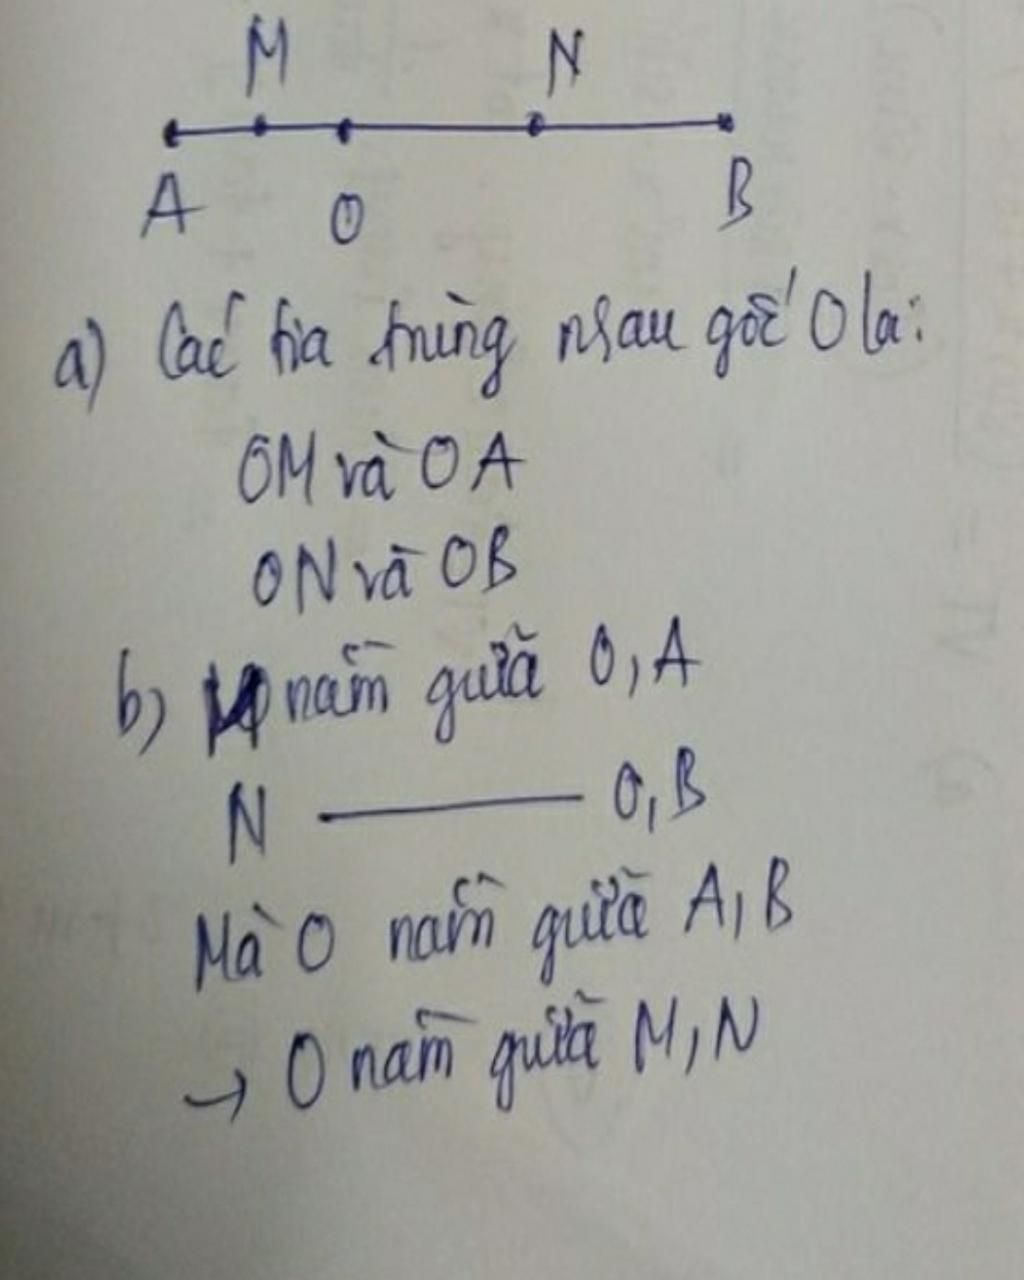 M N
A O B
a) Các tia trùng nhau gốc O là:
OM và OA
ON và OB
b) M nằm giữa O, A
N ——— O, B
Mà O nằm giữa A, B
→ O nằm giữa M, N